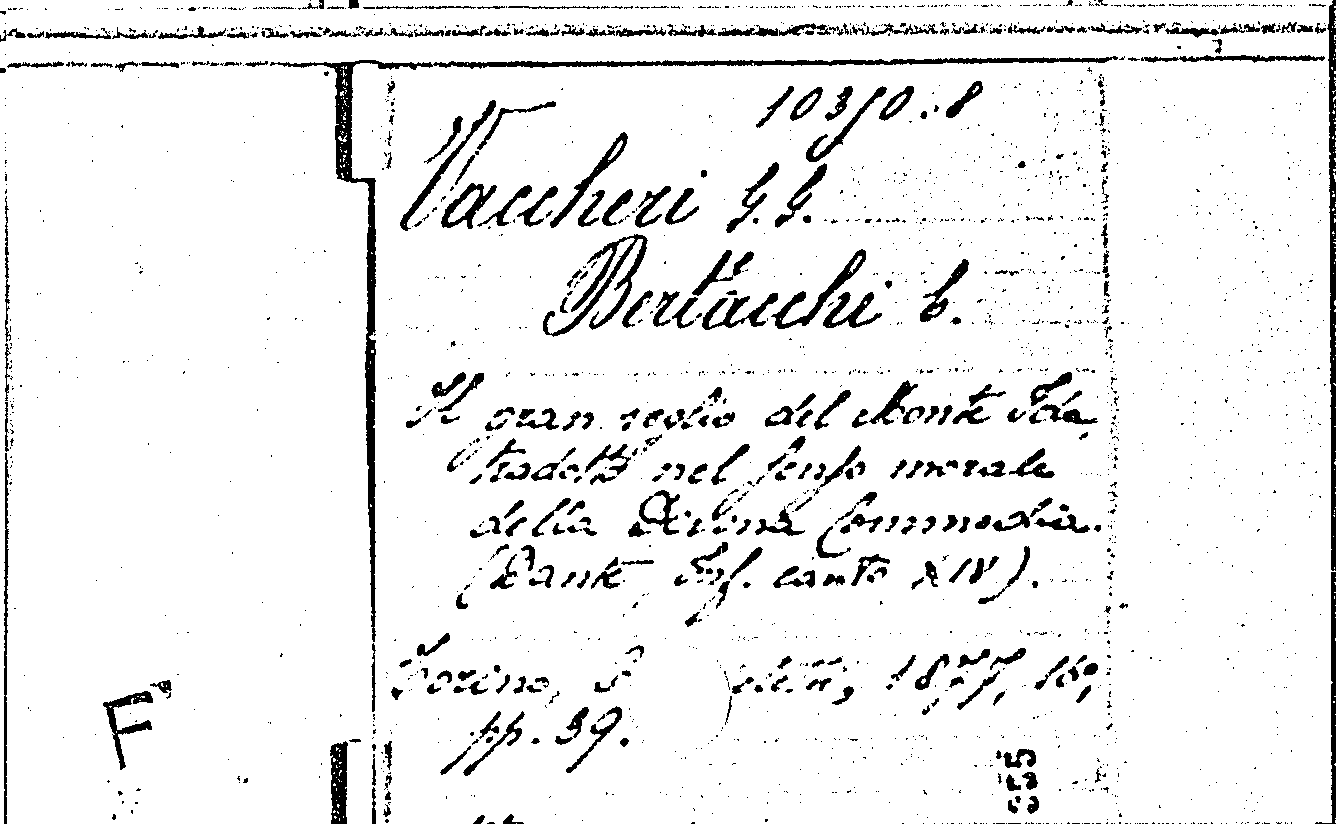 103f0.8
Vaccheri G. G.
Bertacchi C.
Il gran veglio del Monte Ida,
tradotto nel senso morale
della Divina Commedia.
(Dante, Inf. canto XIV).
Torino, 1877, 16°,
pp. 39.
F